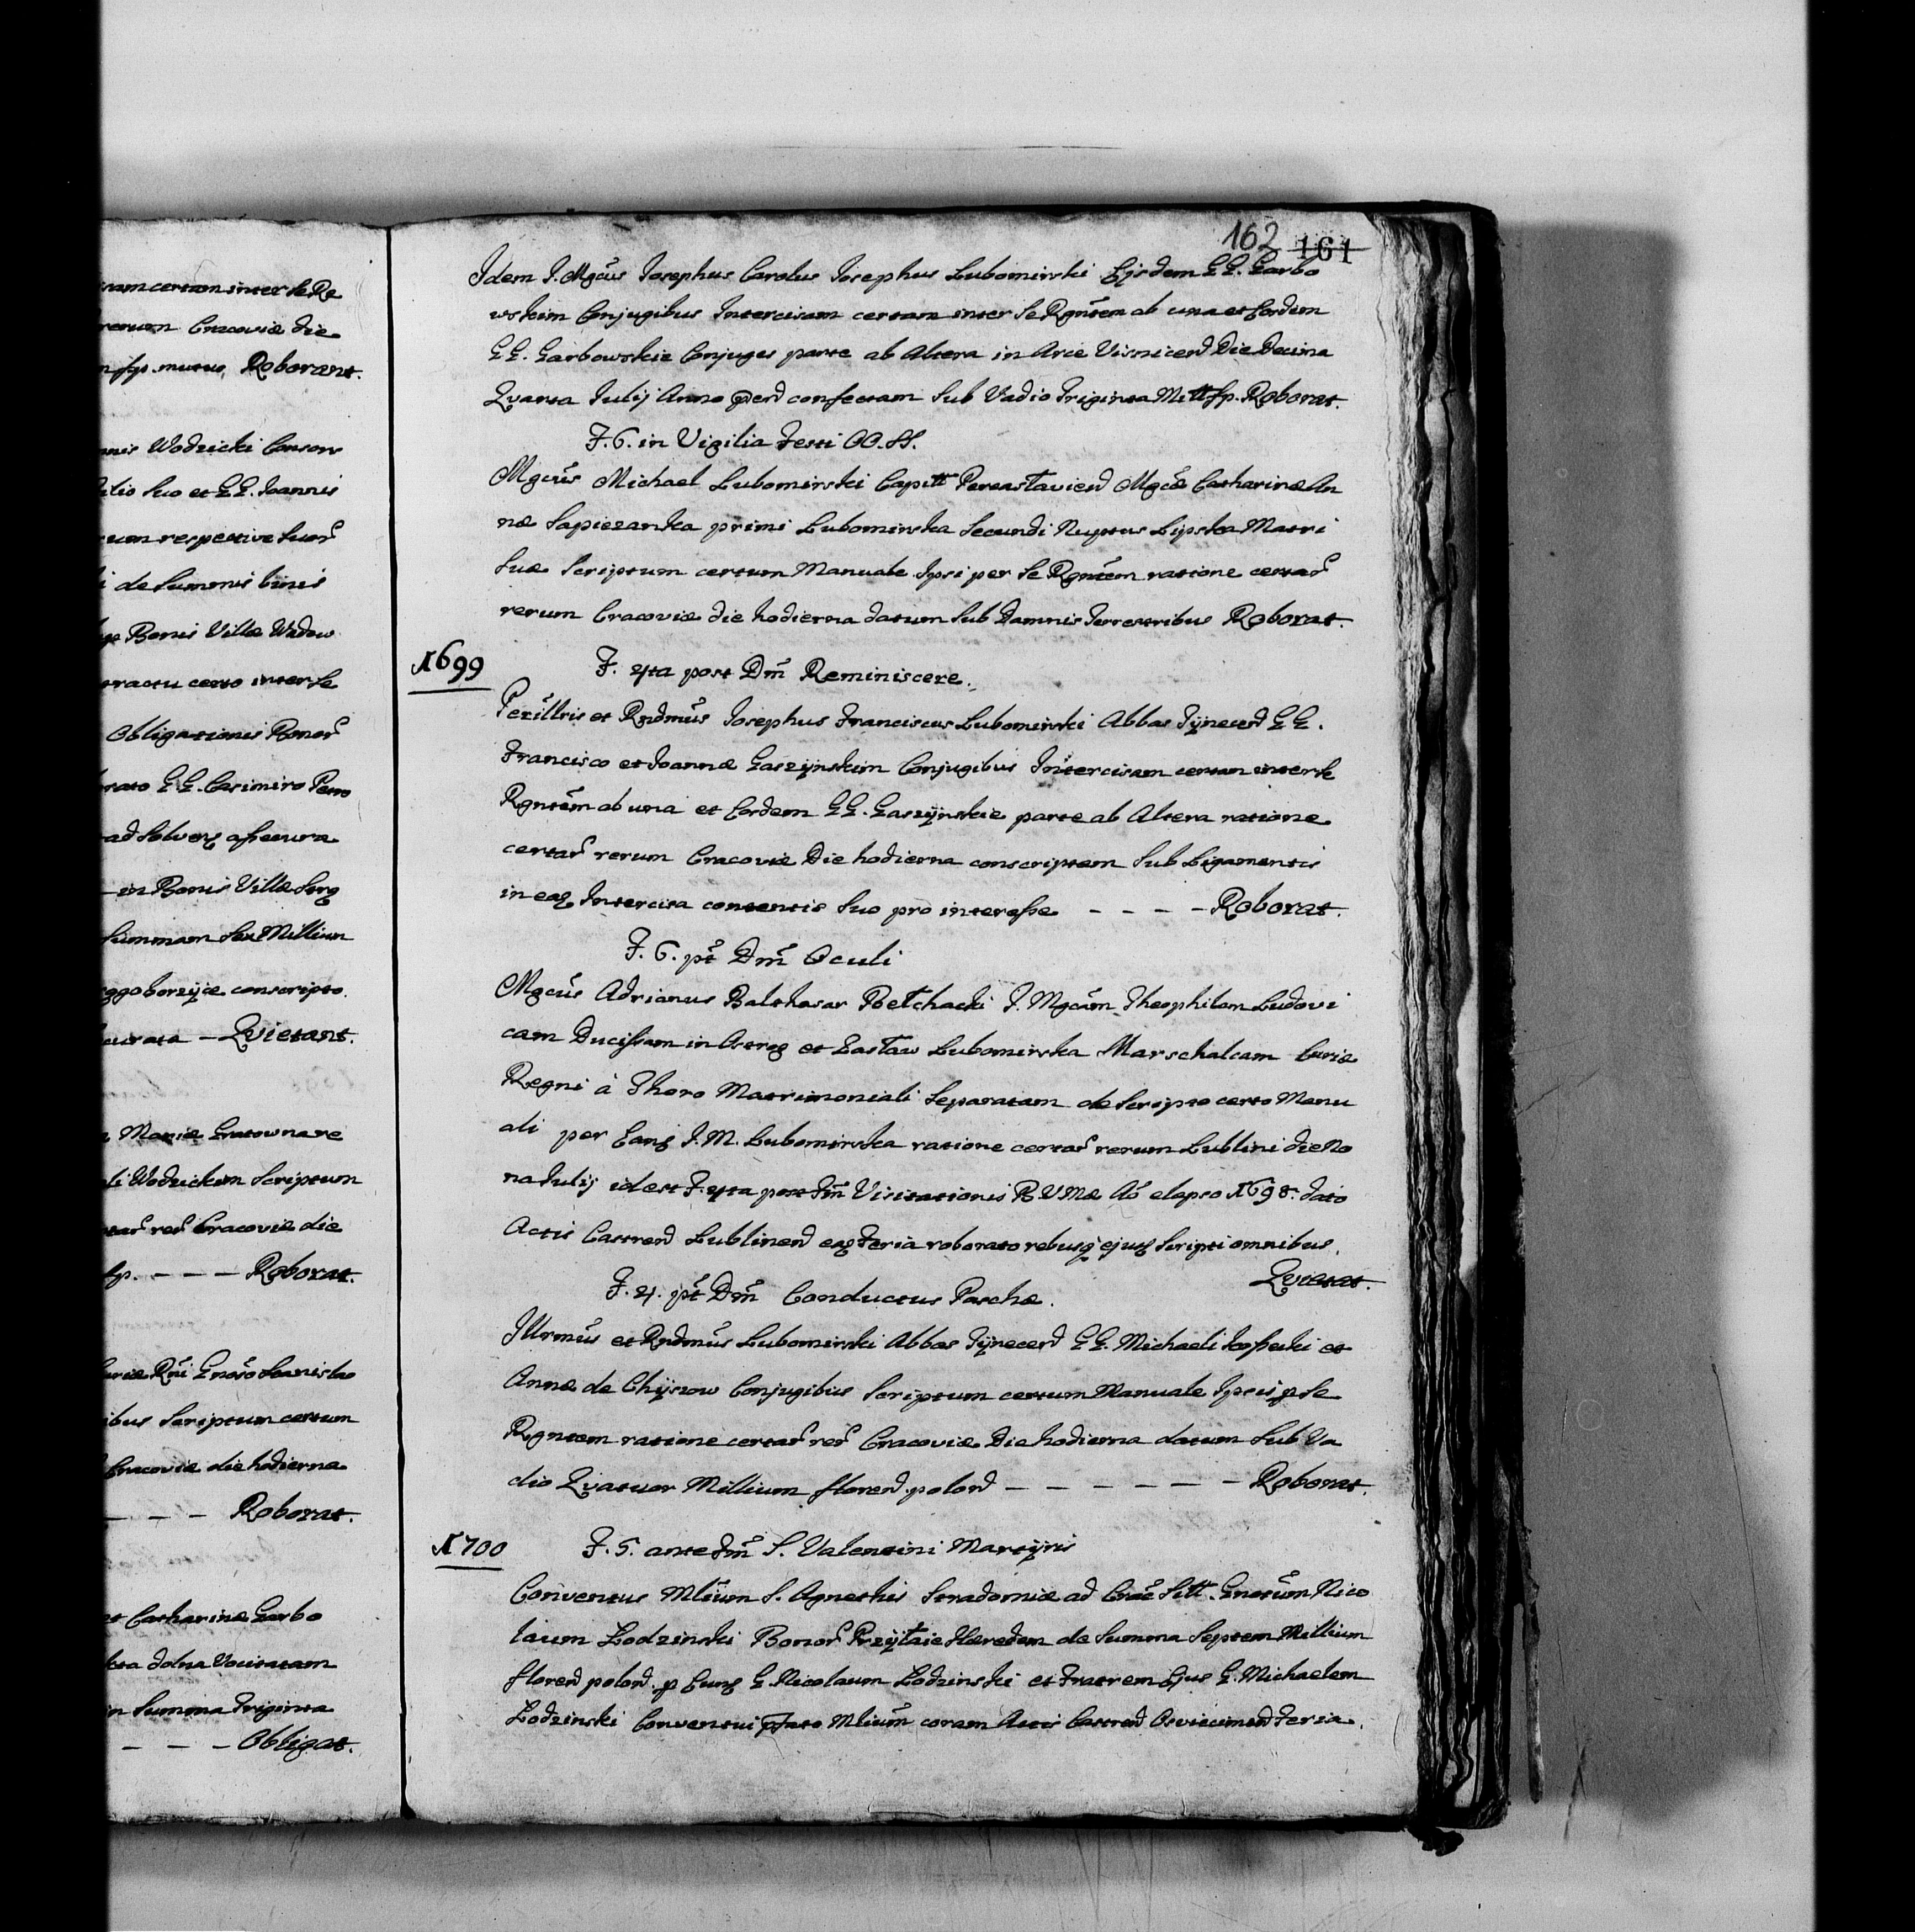 nam certam inter se Re
rerum Cracoviæ die
fp. mutuo Roborant.
Wodzicki Consors
filio suo et GG. Joannis
respective suor̃
de summis binis
Bonis Villæ Wadow
tractu certo inter se
Obligationis Bonor̃
GG. Casimiro Petro
ad solven̄ assecura
in Bonis Villæ
summam sex Millium
conscripto
Qvietant.
Mariæ
Wodzickim Scriptum
rer̃ Cracoviæ die
fp. – – – Roborat.
Rñi Gnoso Stanislao
ibus Scriptum certum
Cracoviæ die hodierna
– – – Roborat.
et Catharinæ Garbo
dolna Vocitatam
in summa Triginta
– – – Obligat.
162 161
Idem J. Mgcus Josephus Carolus Josephus Lubomirski Ejsdem GG. Garbo
wskim Conjugibus Intercisam certam inter se Rgntem ab una et Eosdem
GG. Garbowskie Conjuges parte ab Altera in Arce Visnicen̄ Die Decima
Qvarta Julij Anno pñti confectam sub Vadio Triginta Mill fp. Roborat.
F. 6. in Vigilia Festi OO. SS.
Mgcus Michael Lubomirski Capitt Pereasławien̄ Mgcæ Catharinæ An
næ Sapiezanka primi Lubomirska secundi Nuptus Lipska Matri
suæ Scriptum certum Manuale Ipsi per se Rgntem ratione certar̃
rerum Cracoviæ die hodierna datum sub Damnis Terrestribus Roborat.
1699
F. 4ta post Dm̃ Reminiscere.
Perillris et Rndmus Josephus Franciscus Lubomirski Abbas Tÿnecen̄ GG.
Francisco et Joannæ Gaszÿnskim Conjugibus Intercisam certam inter se
Rgntem ab una et Eosdem GG. Gaszÿnskie parte ab Altera ratione
certar̃ rerum Cracoviæ Die hodierna conscriptam sub Ligamentis
in eaq̃ Intercisa contentis suo pro interesse – – – – Roborat.
F. 6. pt̃ Dm̃ Oculi
Mgcus Adrianus Balthasar Bełchacki J. Mgcam Theophilam Ludovi
cam Ducissam in Ostrog et Zasław Lubomirska Marschalcam Curiæ
Regni à Thoro Matrimoniali separatam de Scripto certo Manu
ali per Eanq̃ J. M. Lubomirska ratione certar̃ rerum Lublini die No
na Julij id est F. 4ta post Fm̃ Visitationis B. V. Mæ Aõ elapso 1698. dato
Actis Castren̄ Lublinen̄ eaq̃ Feria roborato rebusq̃ ejusq̃ Scripti omnibus.
Qvietat.
F. 4. pt̃ Dm̃ Conductus Paschæ.
Illrmus et Rndmus Lubomirski Abbas Tÿnecen̄ GG. Michaeli et
Annæ de Chÿszow Conjugibus Scriptum certum Manuale Ipsis p se
Rgntem ratione certar̃ rer̃ Cracoviæ Die hodierna datum sub Va
dio Qvatuor Millium floren̄ polon̄ – – – – – – Roborat.
1700
F. 5. ante Fm̃ S. Valentini Martÿris
Conventus Mlium S. Agnethis Stradomiæ ad Crac̃ Sitt. Gnosum Nico
laum Lodzinski Bonor̃ Przÿtaie Hæredem de summa Septem Millium
floren̄ polon̄ p Eunq̃ G. Nicolaum Lodzinski et Fratrem Ejus G. Michaelem
Lodzinski Conventui pfato Mlium coram Actis Castren̄ Osviecimen̄ Feria